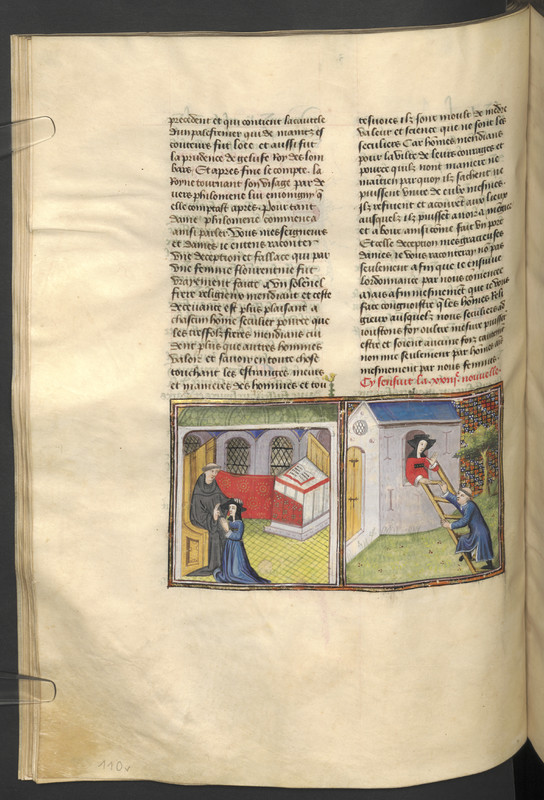 precedent et qui contient la cautele
dun palefrenier qui de maintz es
couteurs fut loee et aussi fut
la prudence de gelufe Roy des lom
bars Et apres fine le compte la
Royne tournant son visage par de
uers philomene lui enioingny q
elle comptast apres Pour tant
dame philomene commenca
ainsi parler Vous mes seigneurs
et dames ie entens raconter
une deception et fallace qui par
une femme florentine fut
vrayement faicte a un solenel
frere religieux mendiant et ceste
deceuance est plus plaisant a
chascun home seculier pource que
les tresfolz freres mendians cui
dent plus que autres hommes
valoir et sauoir en toute chose
touchant les estranges meurs
et manieres des hommes et tou
tesuoies ilz sont moult de mendre
valeur et science que ne sont les
seculiers Car homes mendians
pour la vilte de leurs courages et
pource quilz nont maniere ne
matiere par quoy ilz sachent ne
puissent viure de eulx mesmes
ilz refuient et acourent aux lieux
ausquelz ilz puissent auoir a mengier
et a boire ainsi come fait un porc
Et celle deception mes gracieuses
dames ie vous raconteray no pas
seulement afin que ie ensuiue
lordonnance par nous commencee
mais afin mesmement que ie vous
face congnoistre q les homes Reli
gieux ausquelz nous seculiers ad
ioustons foy oultre mesure puissent
estre et soient aucune foiz
non mie seulement par homes
mesmement par nous femmes
Cy sensuit la nouuelle
110v